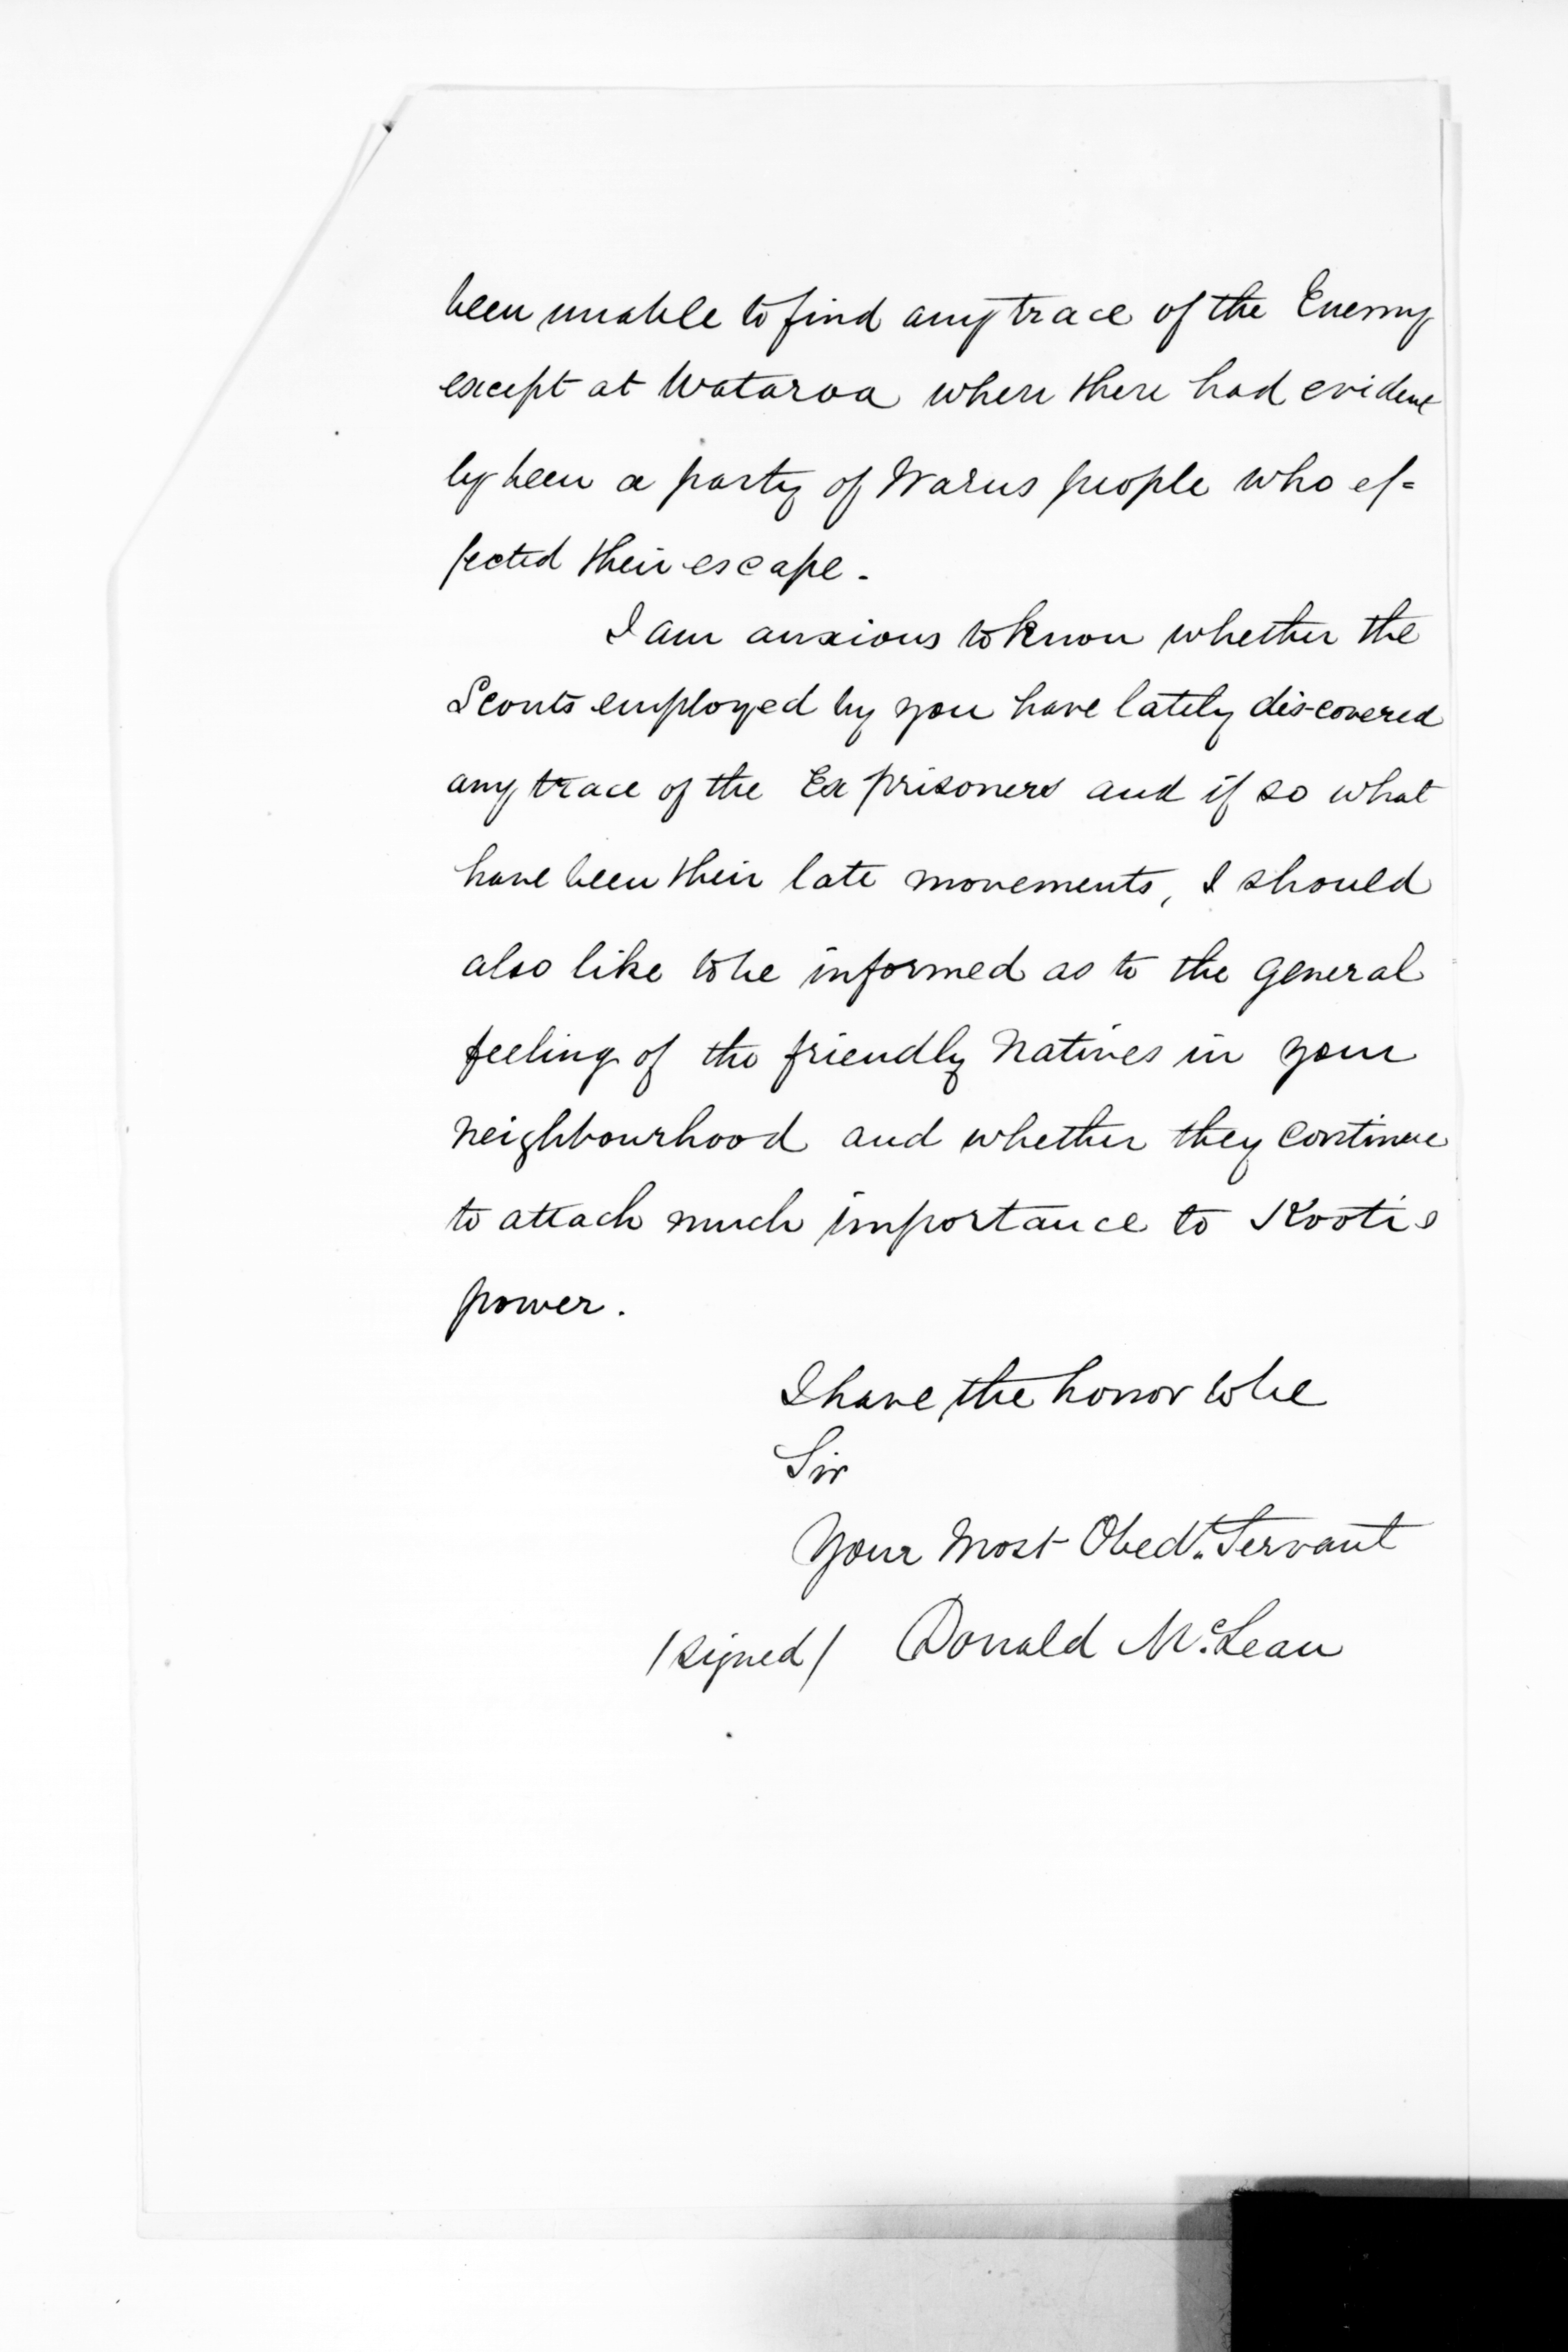 been unable to find any trace of the Enemy
except at Wataroa where there had evident
ly been a party of Warus people who ef=
fected their escape.
I am anxious to know whether the
Scouts employed by you have lately discovered
any trace of the Ex prisoners and if so what
have been their late movements, I should
also like to be informed as to the general
feeling of the friendly Natives in your
neighbourhood and whether they continue
to attach much importance to Kootis
power.
I have the honor to be
Sir
Your Most Obedt. Servant
/signed/ Donald McLean